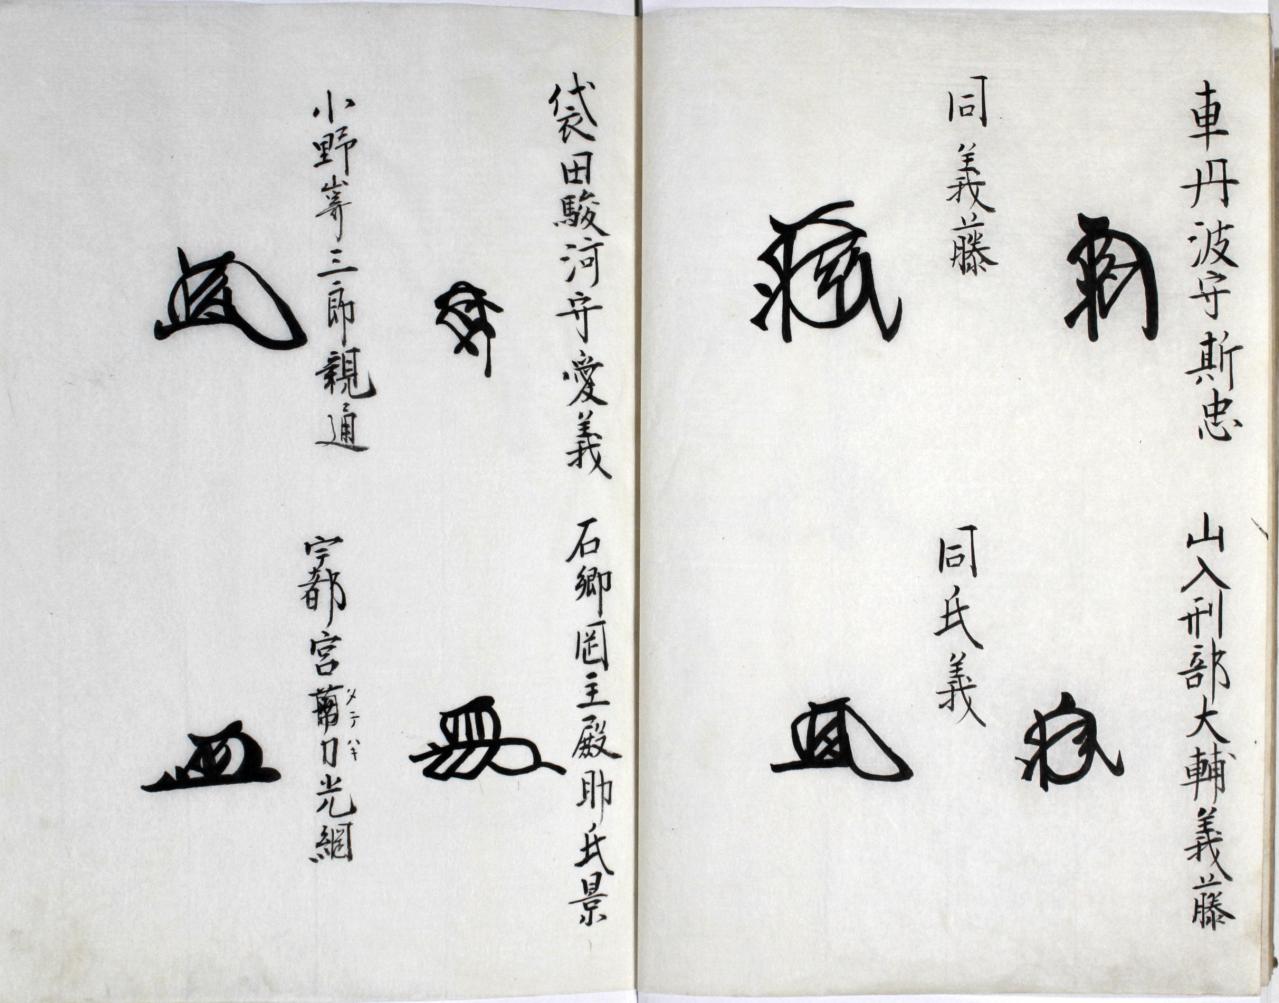 車丹波守斯忠
山入刑部大輔義藤
同義藤
同氏義
袋田駿河守愛義
石郷罡主殿助氏景
小野嵜三郎親通
宇都宮 刀光綱